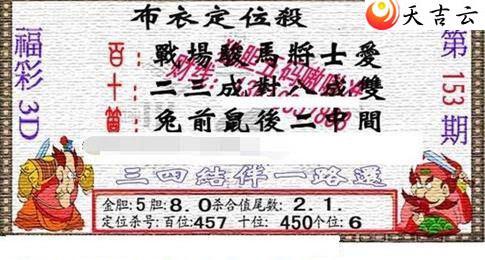 天吉云
布衣定位殺
福彩3D
第153期
百 戰場駿馬將士愛
十 二三成對六成雙
個 兔前鼠後二中間
三四結伴一路選
金胆:5胆:8.0杀合值尾数:2.1.
定位杀号:百位:457 十位:450个位:6